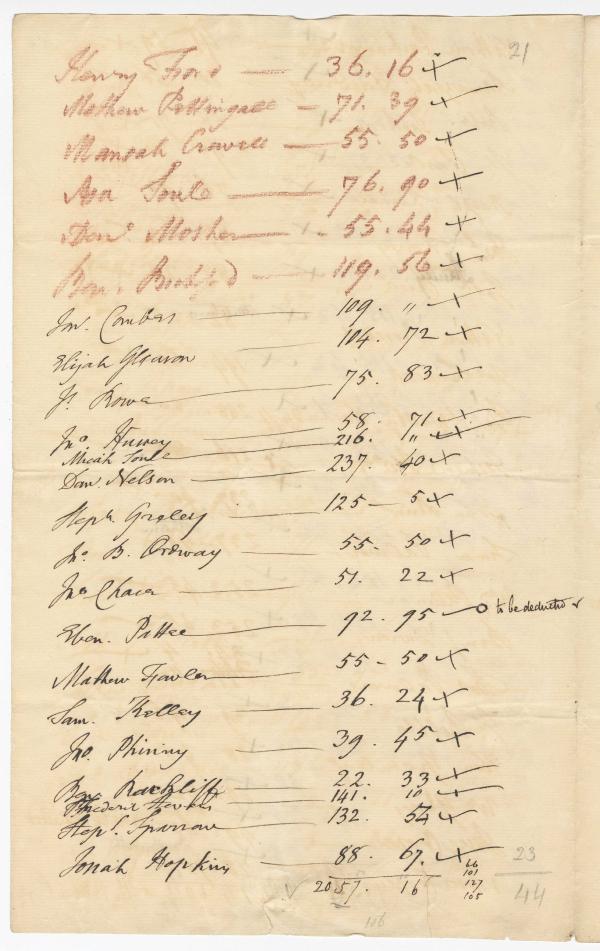 21
Henry Ford — 36. 16 x
Mathew Pettingale — 71. 39 x
Manoah Crowell — 55. 50 x
Asa Soule — 76. 90 x
Danl. Mosher — 55. 44 x
Ben. 119. 56 x
Jno. Combes 109. " x
Elijah Gleason 104. 72 x
J. Rowe 75. 83 x
Jno. Hussey 58. 71 x
Micah Soule 216. " x
Dan. Nelson 237. 40 x
Steph. Greeley 125 — 5 x
Jno. B. Ordway 55 - 50 x
Jno Chace 51. 22 x
Eben. Pattee 92. 95 — o to be deducted
Mathew Fowler 55 - 50 x
Sam. Kelley 36. 24 x
Jno. Phinny 39. 45 x
Ben. Rackliff 22. 33 x
Frederic 141. 10 x
Steph. Sparrow 132. 54 x
Jonah Hopkins 88. 67. x
2057. 16
66
101
127
105
23
44
116